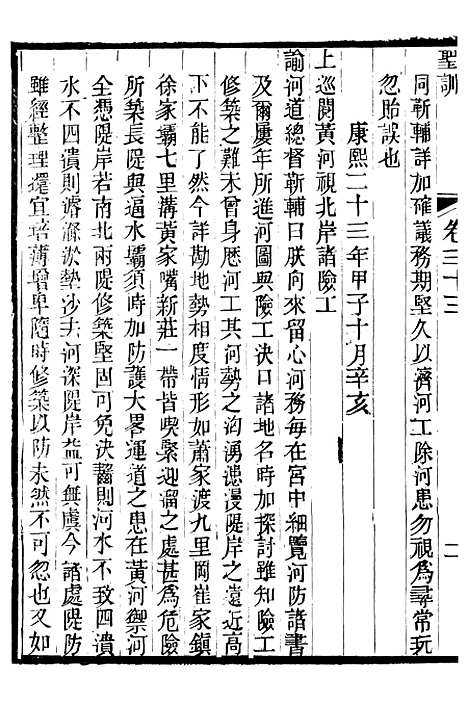 聖訓 卷三十三 二
同靳輔詳加確議務期堅久以濟河工除河患勿視為尋常玩
忽貽誤也
康熙二十三年甲子十月辛亥
上巡閱黃河視北岸諸險工
諭河道總督靳輔曰朕向來留心河務每在宮中細覽河防諸書
及爾屢年所進河圖與險工決口諸地名時加探討雖知險工
修築之難未曾身歷河工其河勢之洶湧漶漫隄岸之遠近高
下不能了然今詳勘地勢相度情形如蕭家渡九里岡崔家鎮
徐家壩七里溝黃家嘴新莊一帶皆喫緊迎溜之處甚為危險
所築長隄與逼水壩須時加防護大畧運道之患在黃河禦河
全憑隄岸若南北兩隄修築堅固可免決齧則河水不致四潰
水不四潰則濬滌淤墊沙去河深隄岸益可無虞今諸處隄防
雖經整理還宜培薄增卑隨時修築以防未然不可忽也又如